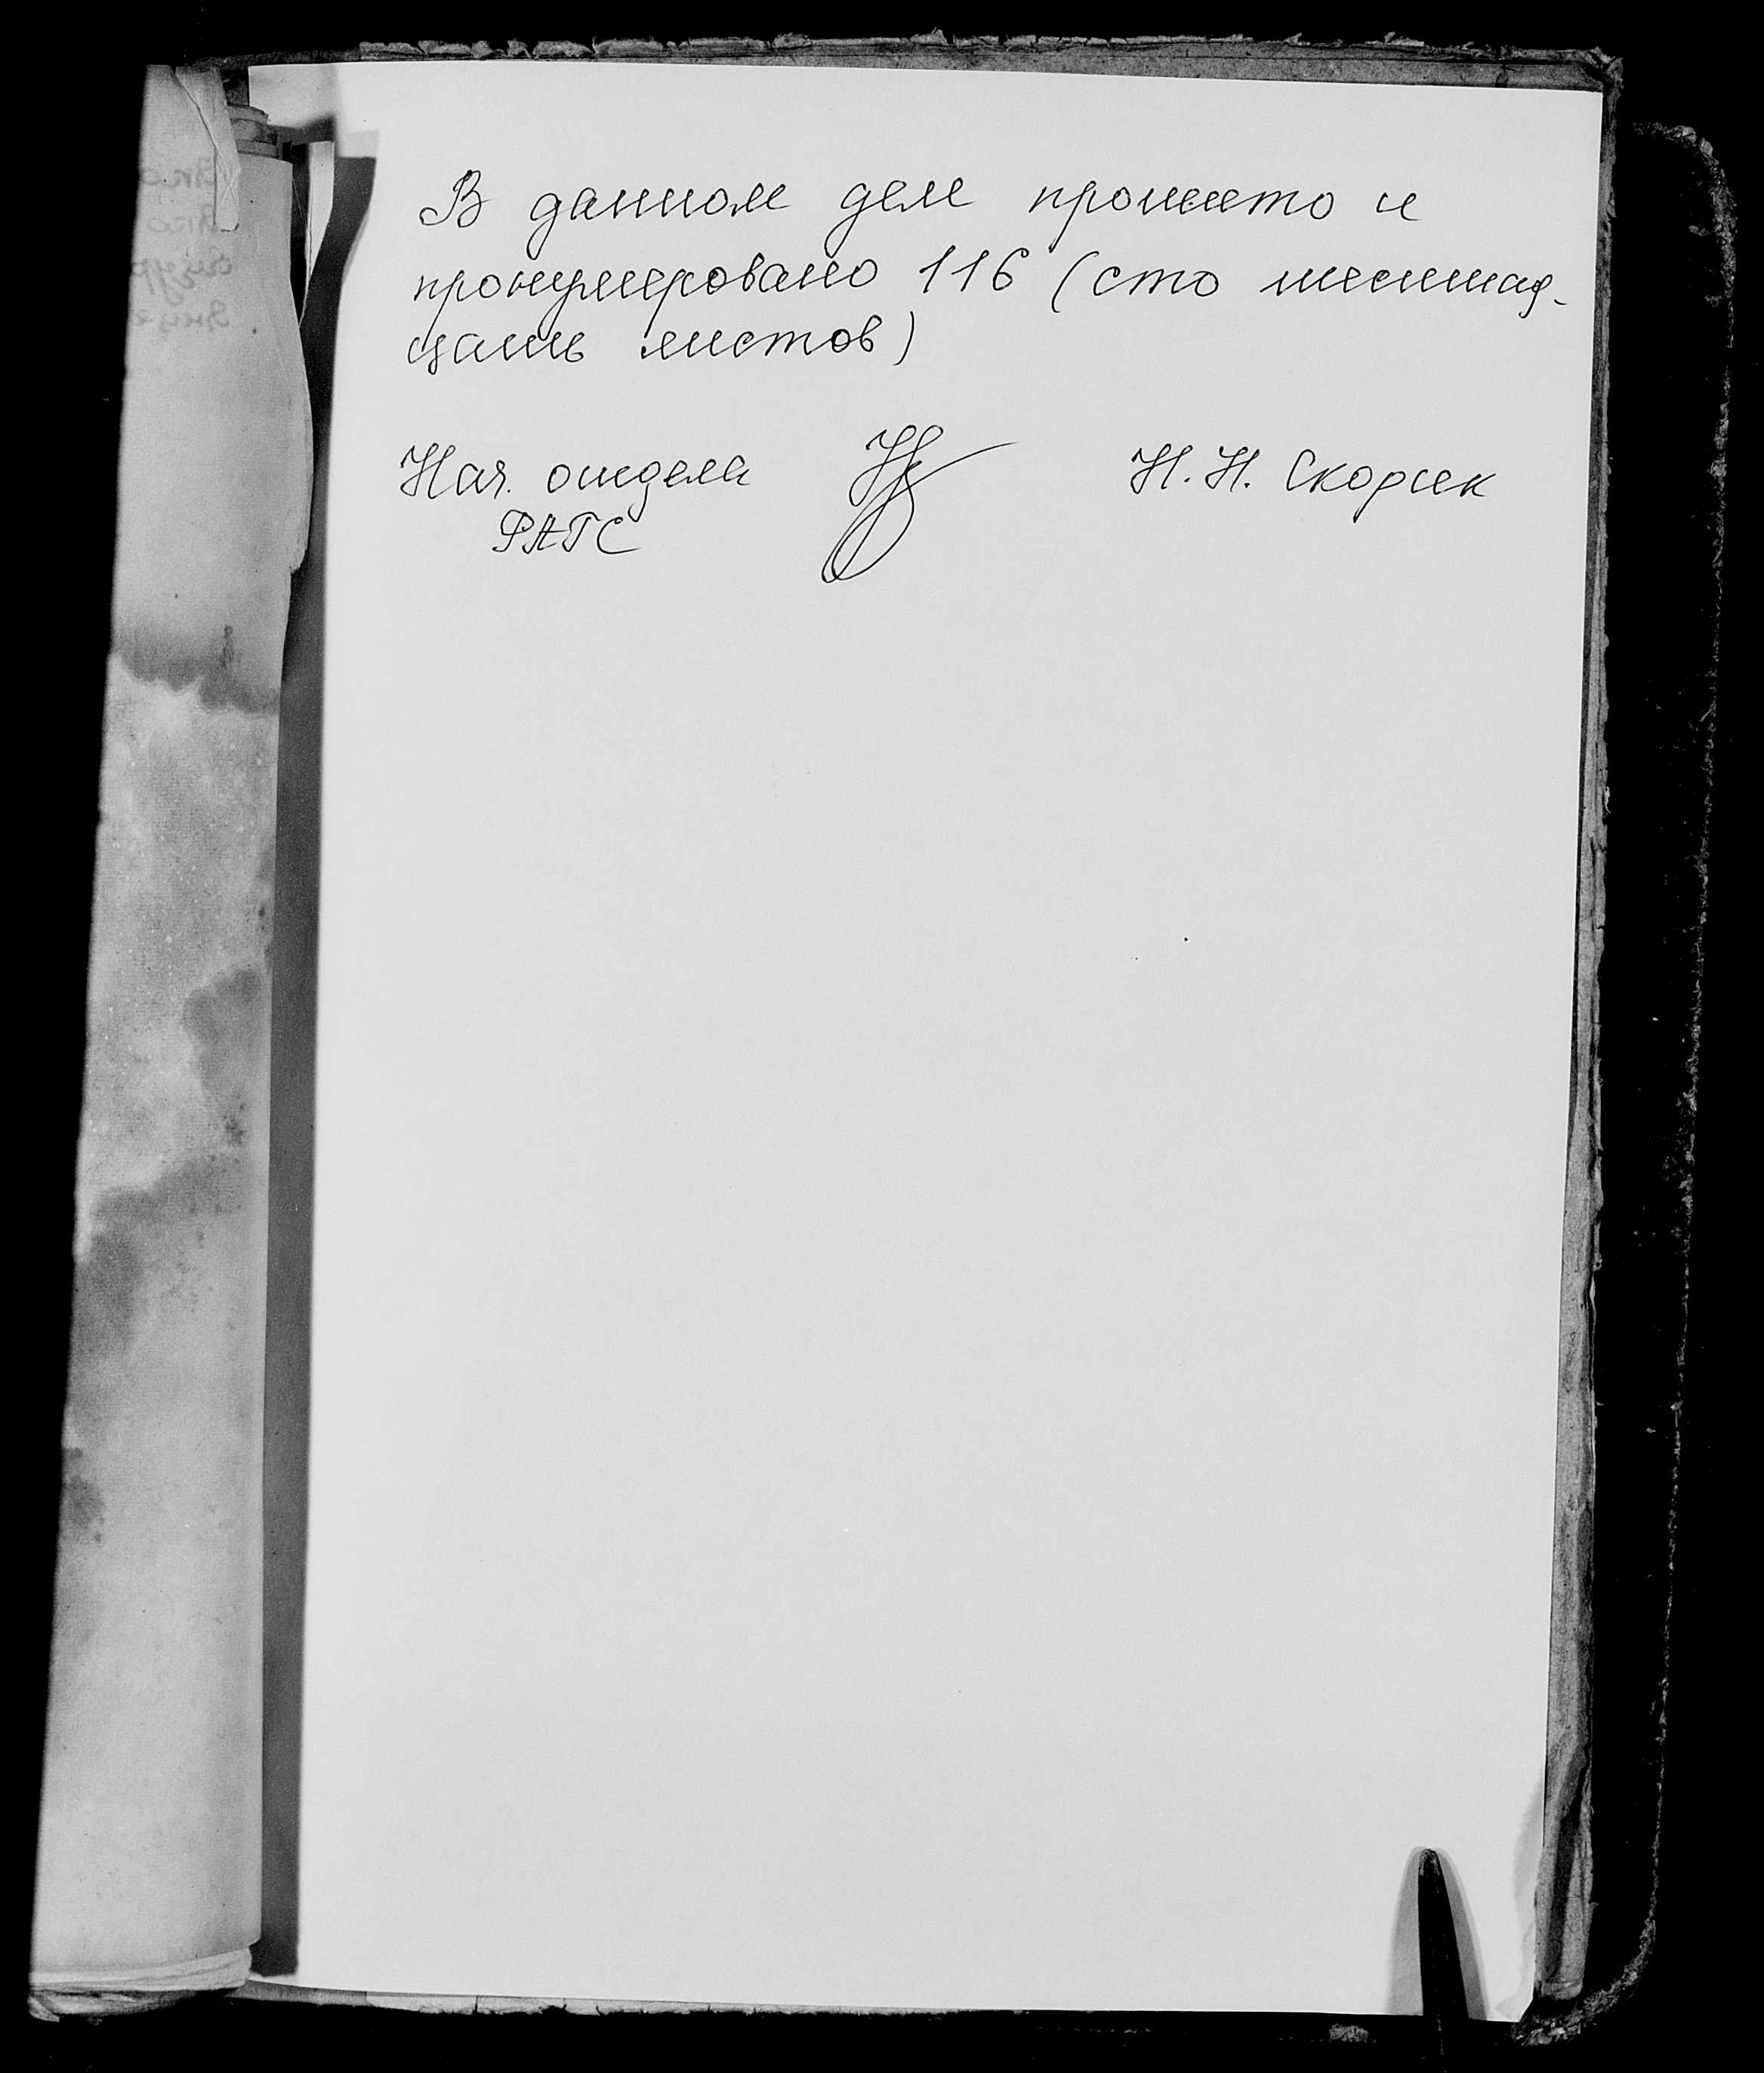 В данном деле прошито и
пронумеровано 116 (сто шестнад-
цать листов)
Нач. отдела Н. Н. Скорик
РАГС